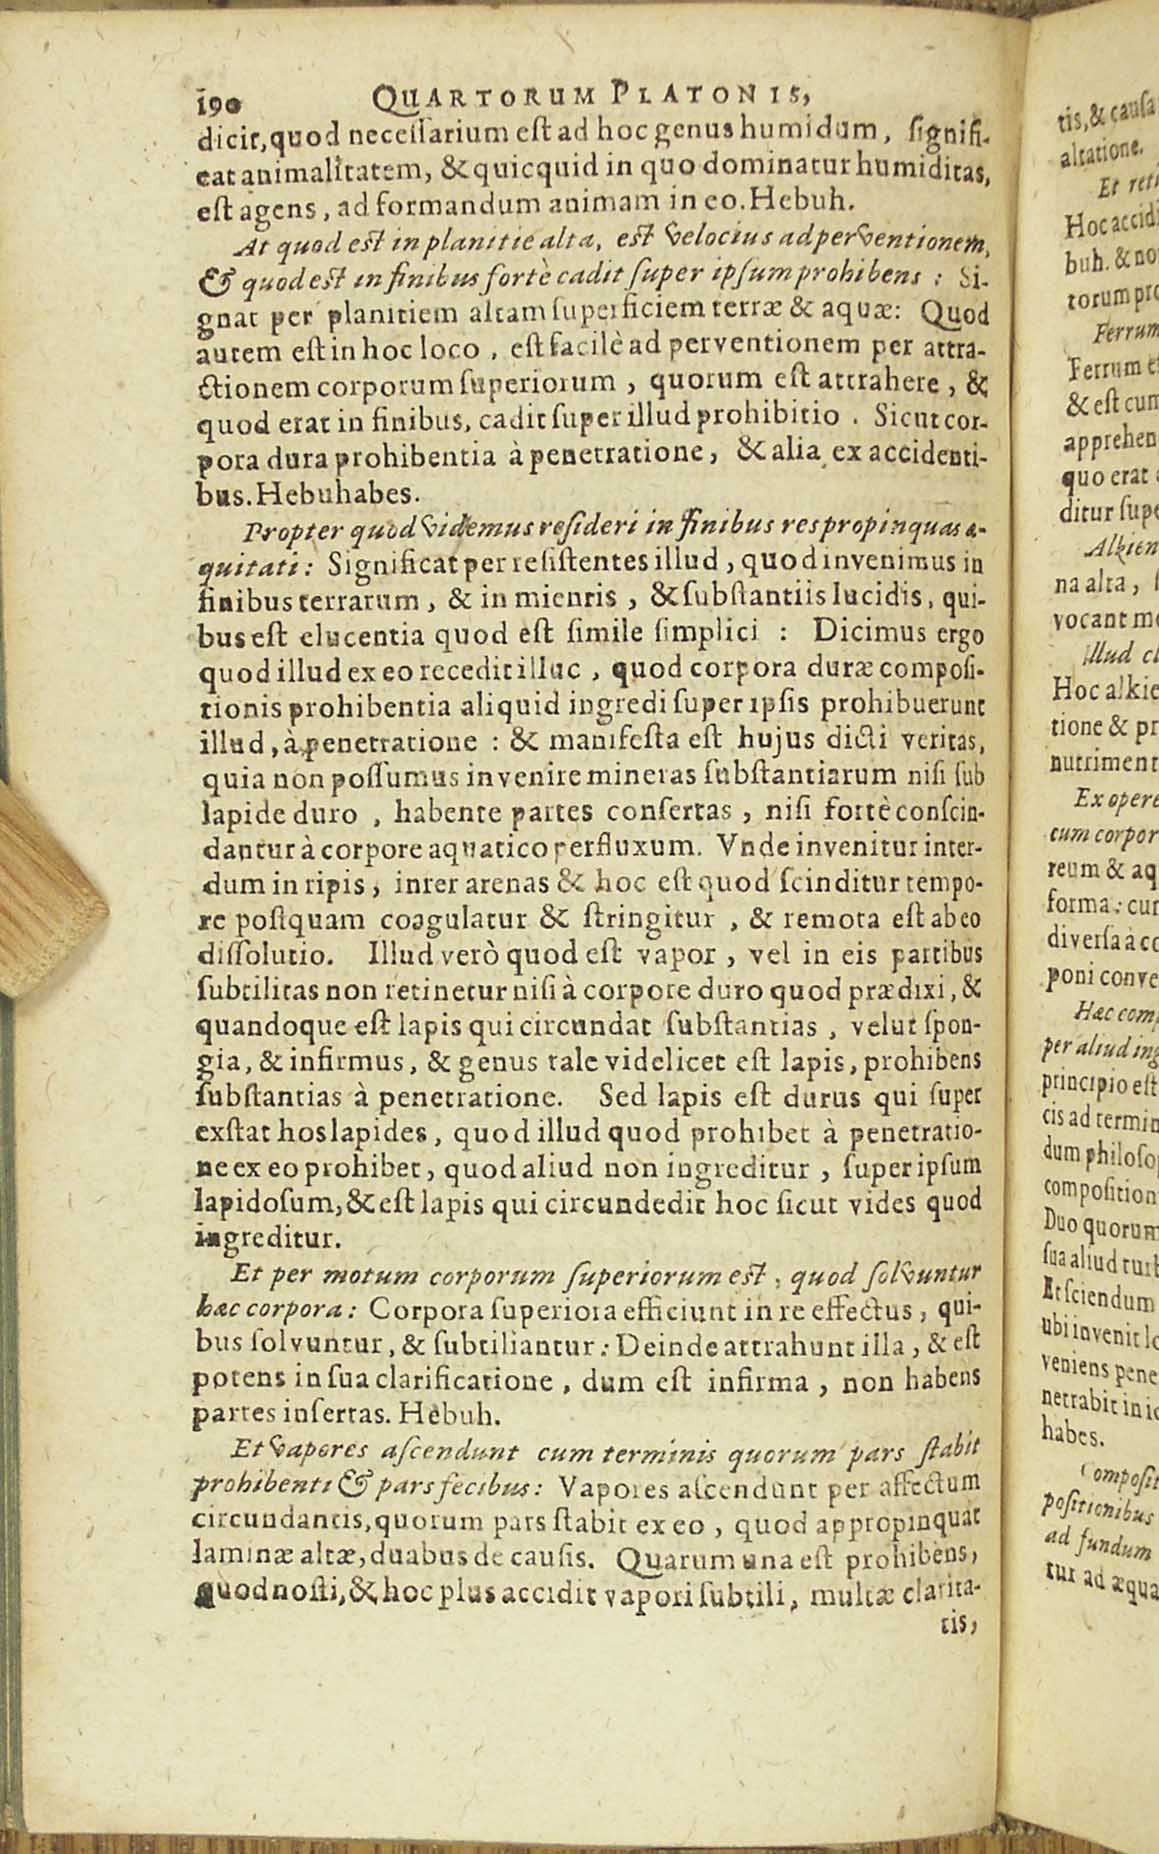 190 QUARTORUM PLATONIS,
dicit, quod necessarium est ad hoc genus humidum, signifi-
cat animalitatem, & quicquid in quo dominatur humiditas,
est agens, ad formandum animam in eo. Hebuh.
At quod est in planitie alta, est velocius ad perventionem,
& quod est in finibus fortè cadit super ipsum prohibens: Si-
gnat per planitiem altam superficiem terræ & aquæ: Quod
autem est in hoc loco, est facilè ad perventionem per attra-
ctionem corporum superiorum, quorum est attrahere, &
quod erat in finibus, cadit super illud prohibitio. Sicut cor-
pora dura prohibentia à penetratione, & alia ex accidenti-
bus. Hebuhabes.
Propter quod videmus resideri in finibus res propinquas æ-
quitati: Significat per resistentes illud, quod invenimus in
finibus terrarum, & in mientis, & substantiis lucidis, qui-
bus est elucentia quod est simile simplici: Dicimus ergo
quod illud ex eo recedit illuc, quod corpora duræ composi-
tionis prohibentia aliquid ingredi super ipsis prohibuerunt
illud, à penetratione: & manifesta est hujus dicti veritas,
quia non possumus invenire mineras substantiarum nisi sub
lapide duro, habente partes consertas, nisi fortè conscin-
dantur à corpore aquatico perfluxum. Vnde invenitur inter-
dum in ripis, inrer arenas & hoc est quod scinditur tempo-
re postquam coagulatur & stringitur, & remota est ab eo
dissolutio. Illud verò quod est vapor, vel in eis partibus
subtilitas non retinetur nisi à corpore duro quod prædixi, &
quandoque est lapis qui circundat substantias, velut spon-
gia, & infirmus, & genus tale videlicet est lapis, prohibens
substantias à penetratione. Sed lapis est durus qui super
exstat hos lapides, quod illud quod prohibet à penetratio-
ne ex eo prohibet, quod aliud non ingreditur, super ipsum
lapidosum, & est lapis qui circundedit hoc sicut vides quod
ingreditur.
Et per motum corporum superiorum est, quod solvuntur
hæc corpora: Corpora superiora efficiunt in re effectus, qui-
bus solvuntur, & subtiliantur: Deinde attrahunt illa, & est
potens in sua clarificatione, dum est infirma, non habens
partes insertas. Hebuh.
Et vapores ascendunt cum terminis quorum pars stabit
prohibenti & pars fecibus: Vapores ascendunt per affectum
circundantis, quorum pars stabit ex eo, quod appropinquat
laminæ altæ, duabus de causis. Quarum una est prohibens,
quod nosti, & hoc plus accidit vapori subtili, multæ clarita-
tis,
tis, & causa
altatione.
Et reti
Hoc accidi
buh. & no
torum pro
Ferrum
Ferrum e
& est cum
apprehen
quo erat
ditur supe
Alkien
na alta,
vocant me
Illud cl
Hoc alkie
tione & pr
nutriment
Ex opere
cum corpor
reum & aq
forma: cur
diversa à co
poni conve
Hæc comp
per aliud ing
principio est
cis ad termin
dum philoso
composition
Duo quorum
sua aliud turb
Et sciendum
ubi invenit lo
veniens pene
netrabit in ic
habes.
Composit
positionibus
ad fundum
tur ad æqua